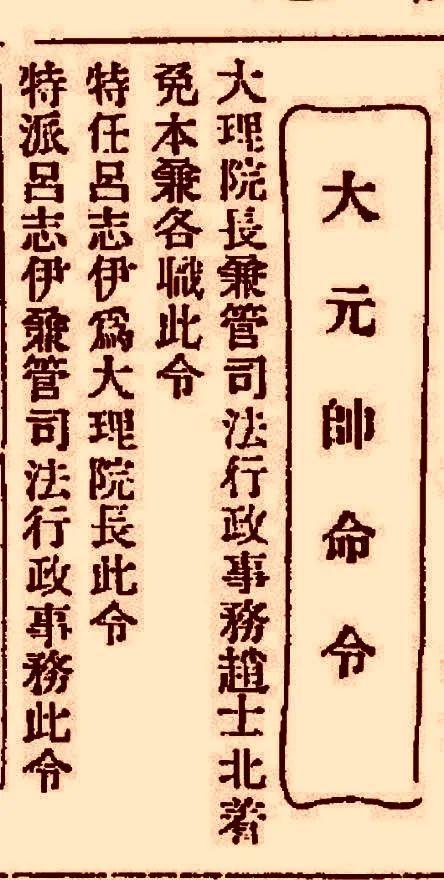 大元帥命令
大理院長兼管司法行政事務趙士北着
免本兼各職此令
特任呂志伊爲大理院長此令
特派呂志伊兼管司法行政事務此令